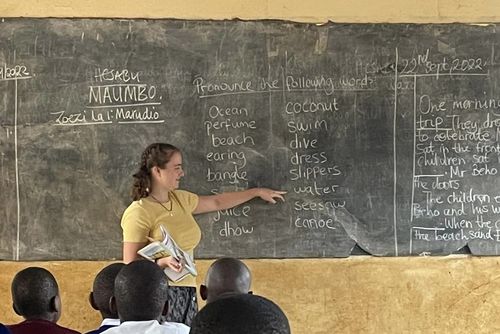 HESABU
MAUMBO.
Zoezi la 1: Marudio
Pronounce the following words:
Ocean
perfume
beach
earing
bangle
juice
dhow
coconut
swim
dive
dress
slippers
water
seesaw
canoe
22nd Sept, 2022
One mornin
trip. They dr
to celebrate
Sat in the front
children sat
Mr Beho
the doors
The children
and his w
When the c
the beach sand